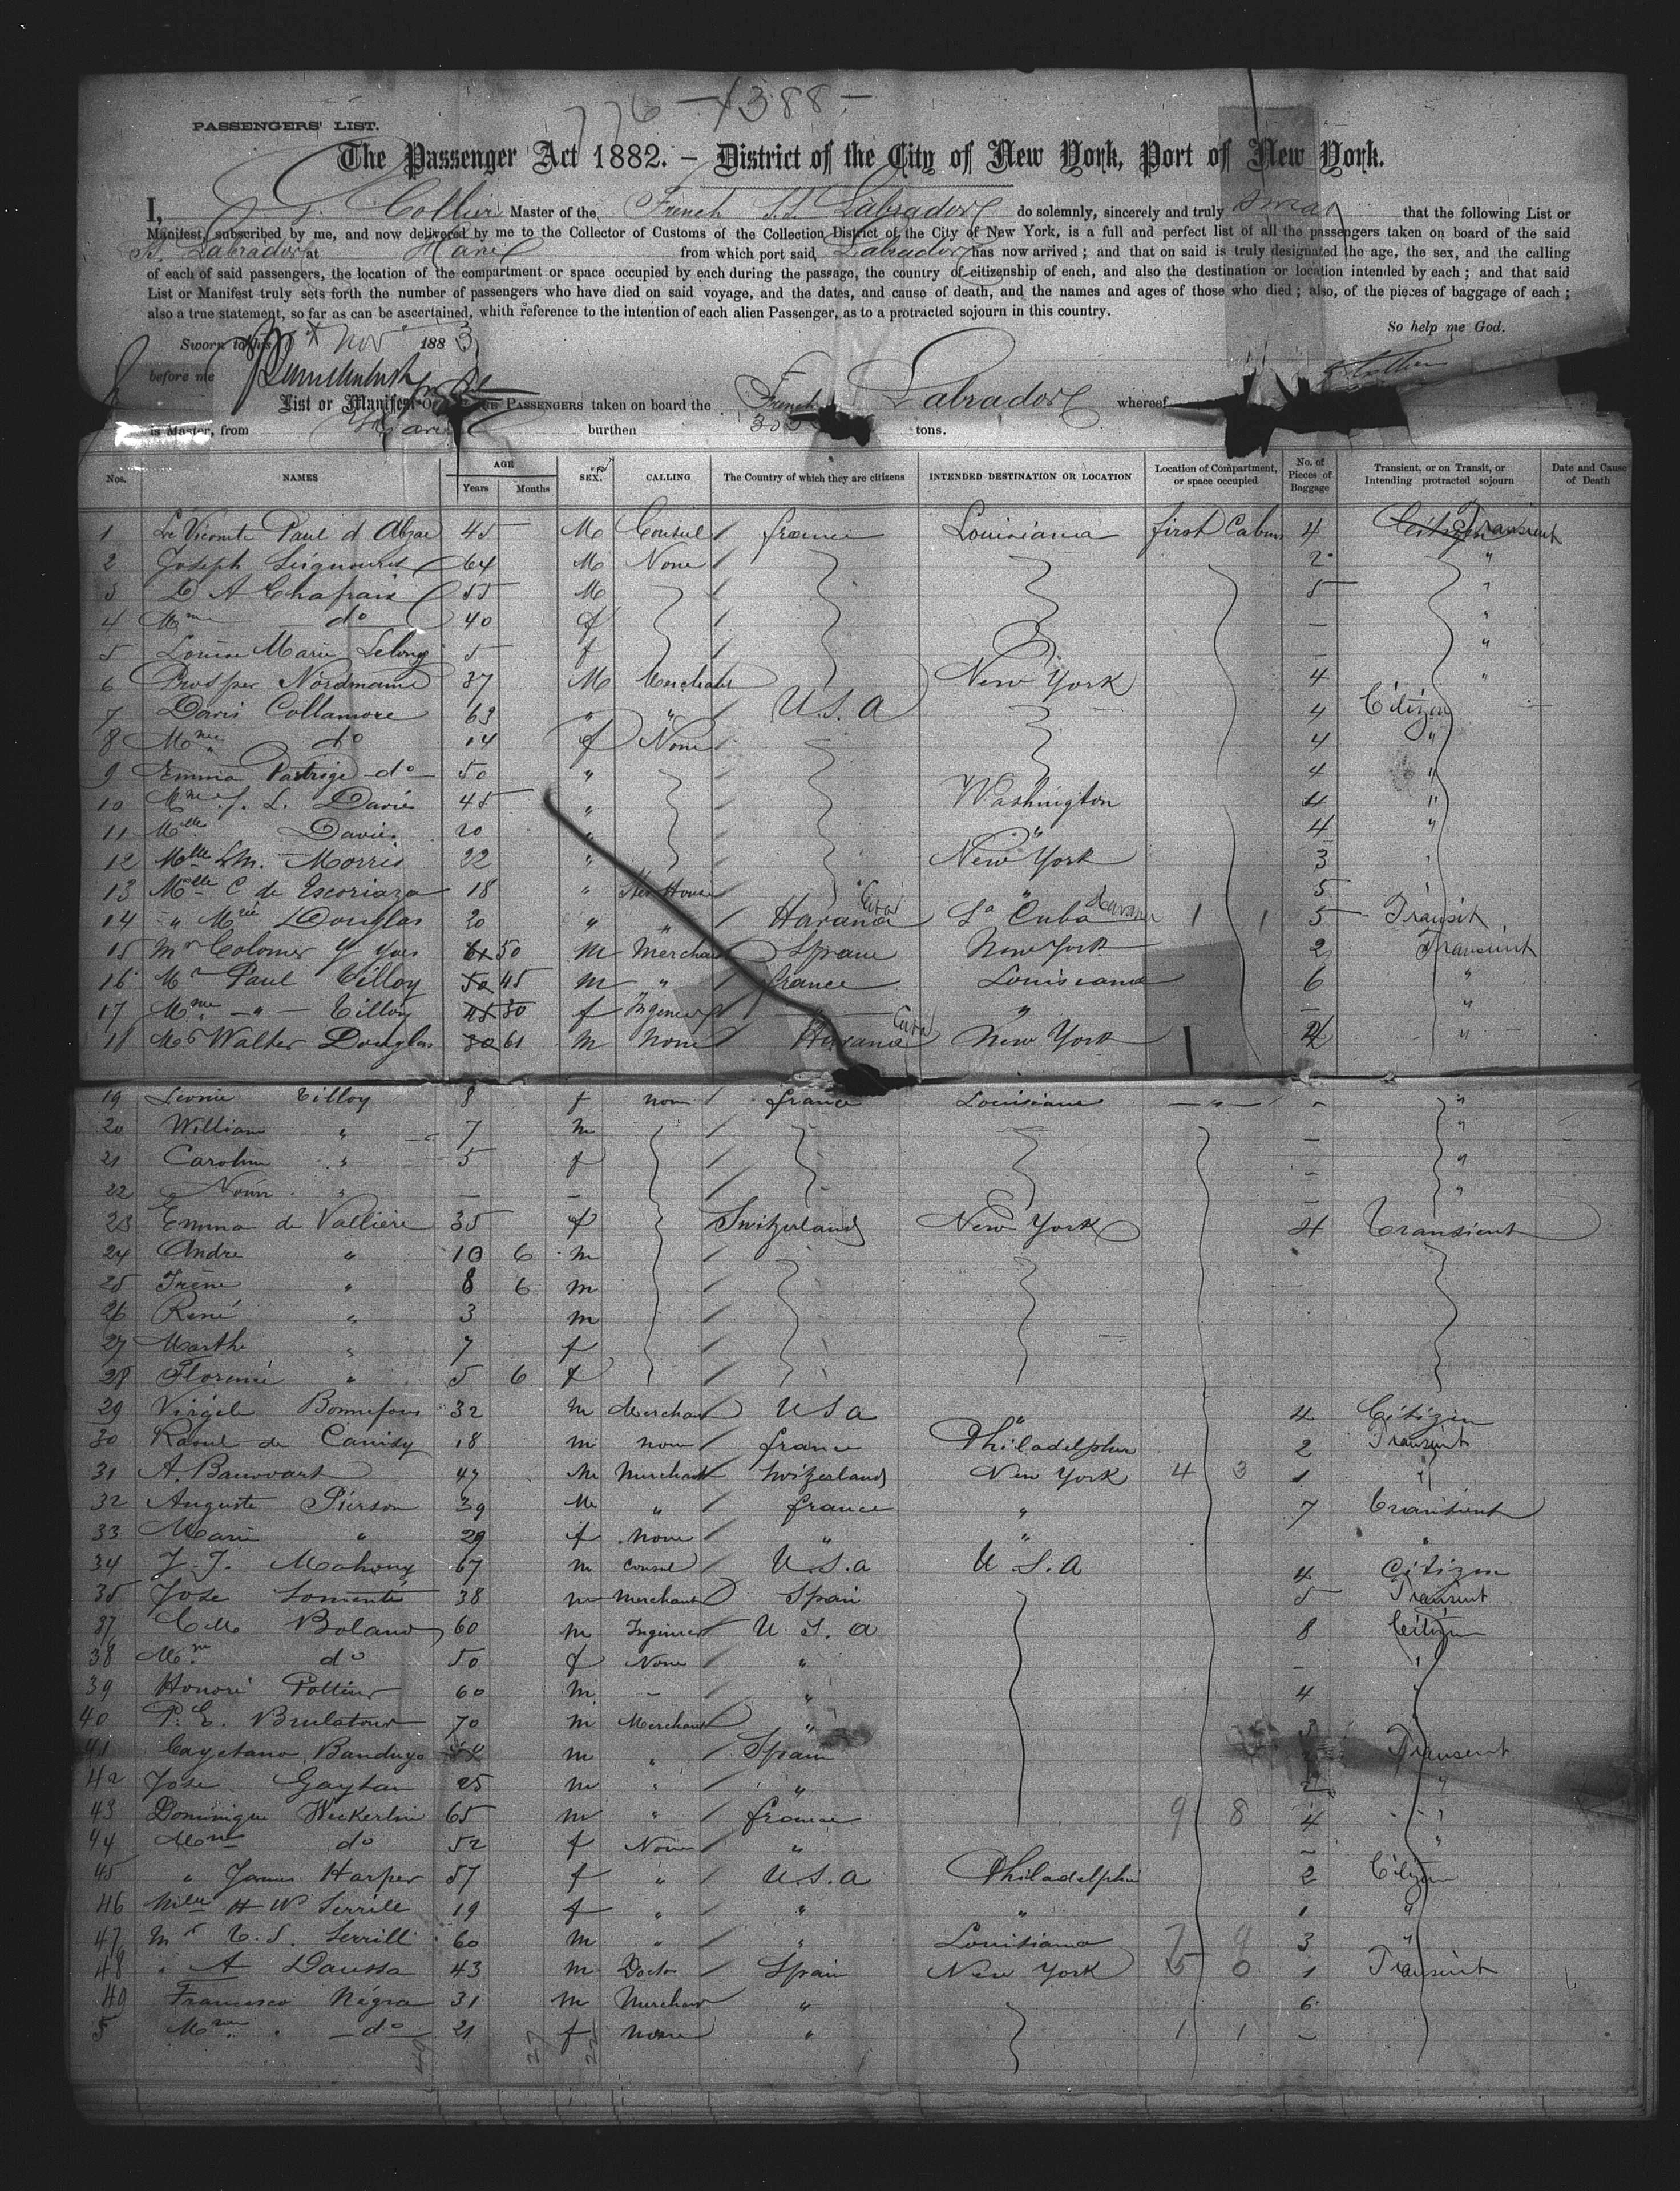 776 - 1388 -
PASSENGERS' LIST.
The Passenger Act 1882. — District of the City of New York, Port of New York.
I, Collier Master of the French S.S. Labrador do solemnly, sincerely and truly swear that the following List or
Manifest, subscribed by me, and now delivered by me to the Collector of Customs of the Collection District of the City of New York, is a full and perfect list of all the passengers taken on board of the said
Labrador at Havre from which port said Labrador has now arrived ; and that on said is truly designated the age, the sex, and the calling
of each of said passengers, the location of the compartment or space occupied by each during the passage, the country of citizenship of each, and also the destination or location intended by each ; and that said
List or Manifest truly sets forth the number of passengers who have died on said voyage, and the dates, and cause of death, and the names and ages of those who died ; also, of the pieces of baggage of each ;
also a true statement, so far as can be ascertained, whith reference to the intention of each alien Passenger, as to a protracted sojourn in this country.
So help me God.
Sworn to this Nov 1883
before me
List or Manifest OF THE PASSENGERS taken on board the French Labrador whereof
is Master, from Havre burthen tons.
Nos. NAMES AGE Years Months SEX. CALLING The Country of which they are citizens INTENDED DESTINATION OR LOCATION Location of Compartment, or space occupied No. of Pieces of Baggage Transient, or on Transit, or Intending protracted sojourn Date and Cause of Death
1 Le Vicomte Paul d Abzac 45 M Consul / france Louisiana first Cabin 4 Transient
2 Joseph 64 M None / 2 "
3 D A Chafraix 55 M / 5 "
4 Mme do 40 f / — "
5 Louise Marie Lelong 5 f / — "
6 Prosper Nordmann 37 M Merchant New York 4 "
7 Davis Collamore 63 " " / U.S.A 4 Citizen
8 Mme " do 14 f None / 4 "
9 Emma Partrige do 50 " / 4 "
10 Mme J. L. Davis 45 " / Washington 4 "
11 Mlle Davis 20 " / " 4 "
12 Mlle M. Morris 22 " / New York 3 "
13 Mlle C de Escoriaza 18 " / " 5 "
14 " Marie Douglas 20 " " / Havana Cuba La Cuba Havana 1 1 5 Transit
15 Mr Colomer y yves 50 M Merchant Spain New York 2 Transient
16 Mr Paul Tilloy 45 M " france Louisiana 6 "
17 Mme " Tilloy 30 f Ingenieur " " — "
18 Mr Walter Douglas 61 M None Havana Cuba New York 1 "
19 Leonie Tilloy 8 f non / france Louisiane — " — - "
20 William " 7 M / — "
21 Caroline " 5 f / - "
22 " — — / — "
23 Emma de Valliere 35 f Switzerland New York 4 Transient
24 Andre " 10 6 m /
25 Irène " 8 6 m /
26 René " 3 m /
27 Marthe " 7 f /
28 Florence " 5 6 f /
29 Virgile Bonnefous 32 M Merchant USA " 4 Citizen
30 Raoul de Canisy 18 M non / france Philadelphia 2 Transient
31 A. 47 M Merchant Switzerland New York 4 3 1 "
32 Auguste Pierson 39 M " / france " 7 Transient
33 Marie " 29 f none / " " "
34 J. J. Mahony 67 M Consul / U.S.a U.S.A 4 Citizen
35 Jose 38 M Merchant Spain 5 Transient
37 Boland 60 M Ingenieur U.S.a 8 Citizen
38 Mme do 50 f None / " - "
39 Honoré Pottier 60 M — / " 4 "
40 P. E. Brulatour 70 M Merchant " 3
41 Cayetano M " / Spain Transient
42 Jose Gaytan 25 M " / " 2 "
43 Dominique Weckerlin 65 M " / france 9 8 4 "
44 Mme do 52 f None / " - "
45 " James Harper 57 f " / U.S.a Philadelphia 2 Citizen
46 Mlle H W Serrill 19 f " / " " 1 "
47 Mr Serrill 60 M " / " Louisiana 3 "
48 " A Daussa 43 M Doctor / Spain New York 1 Transient
49 Francisco Negra 31 M Merchant " 6
5 Mme " do 21 f none " 1 1 —
27 22